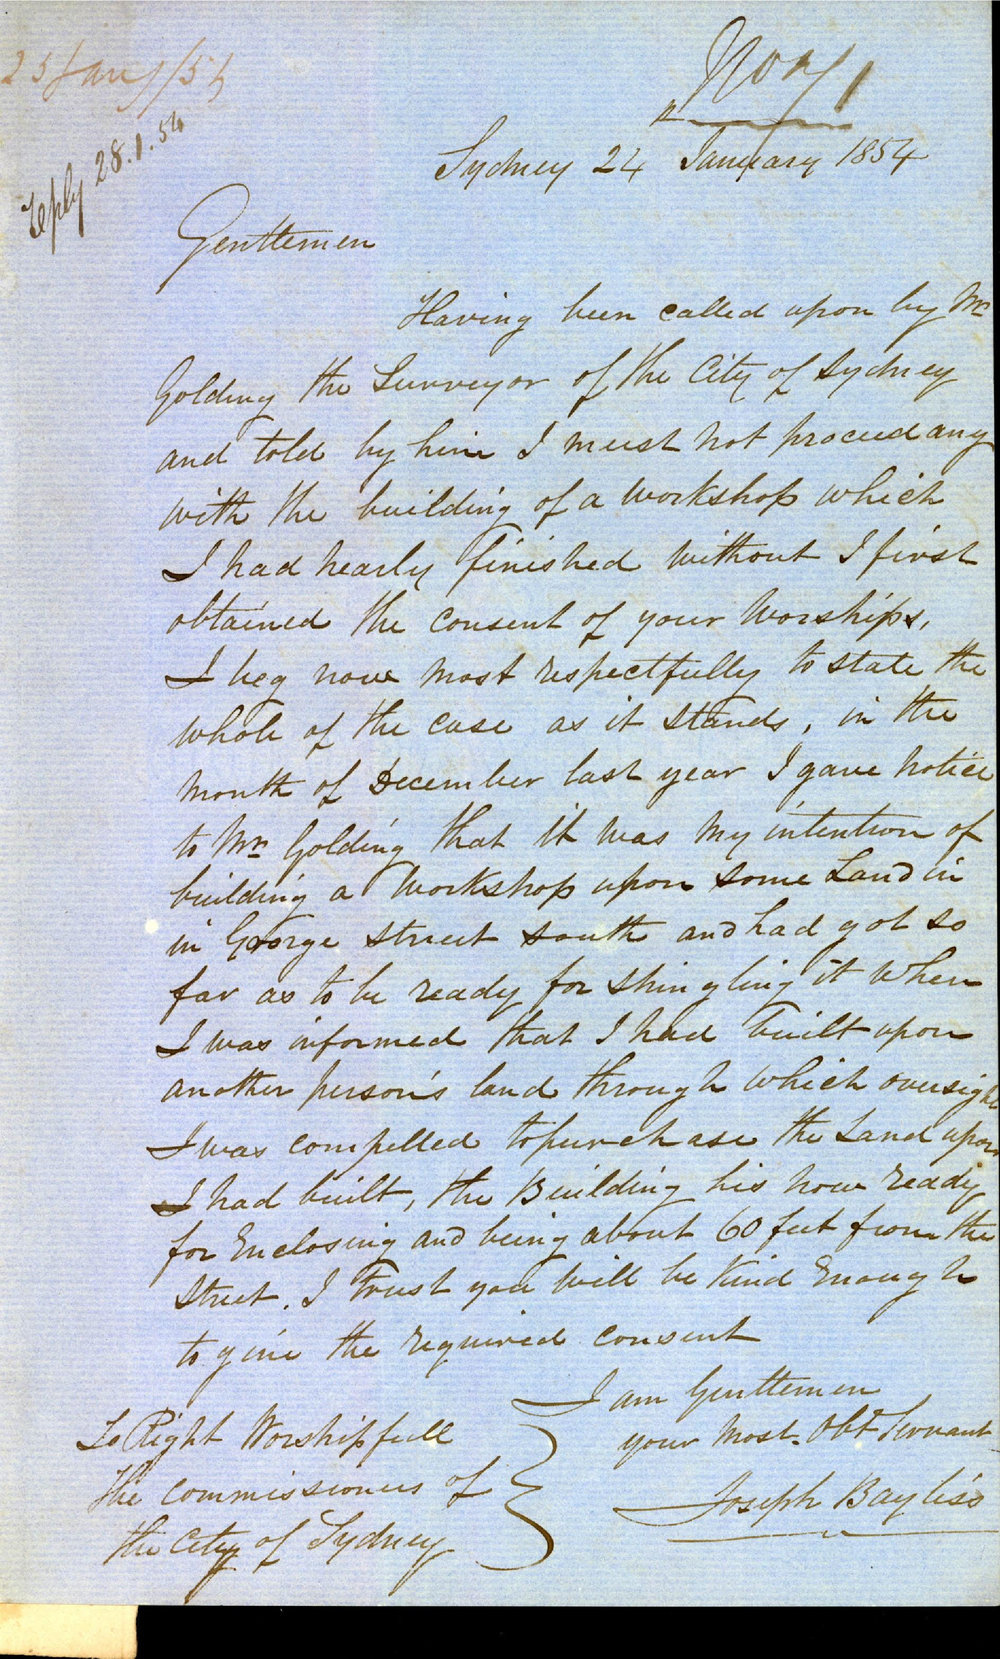 25 Jany/54
No 1
Reply 28.1.54
Sydney 24 January 1854
Gentlemen
Having been called upon by Mr
Golding the Surveyor of the City of Sydney
and told by him I must not proceed any
with the building of a workshop which
I had nearly finished without I first
obtained the consent of your Worships,
I beg now most respectfully to state the
whole of the case as it stands, in the
month of December last year I gave notice
to Mr Golding that it was my intention of
building a workshop upon some Land in
in George street south and had got so
far as to be ready for shingling it when
I was informed that I had built upon
another person's land through which oversight
I was compelled to purchase the Land upon
I had built, the Building his now ready
for Enclosing and being about 60 feet from the
Street. I trust you will be Kind Enough
to give the required consent
I am Gentlemen
your most Obt Servant
Joseph Bayliss
To Right Worshipfull
the commissioners of
the City of Sydney